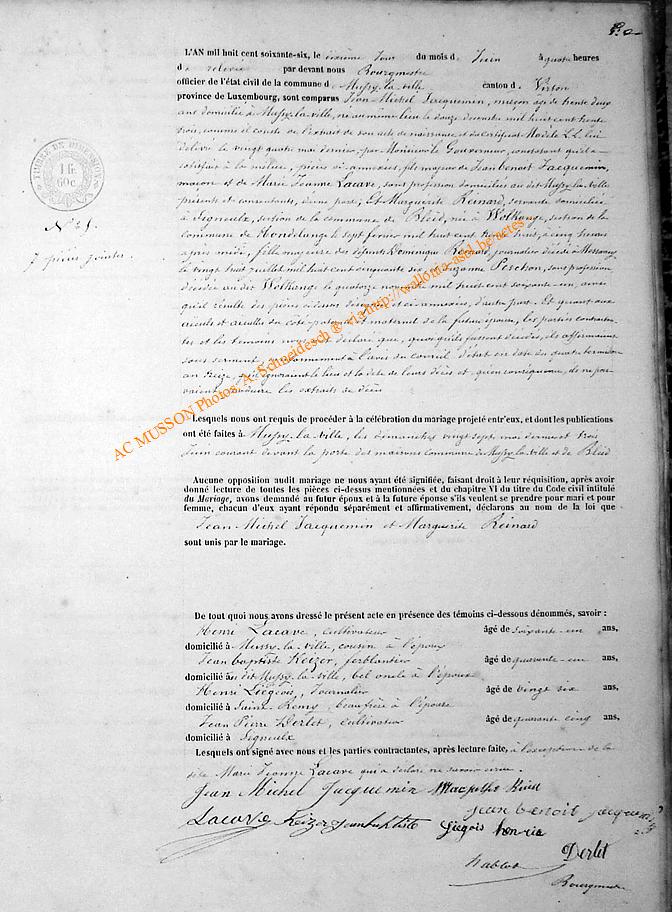 L'AN mil huit cent soixante-six, le sixième jour du mois d Juin à quatre heures
d relevée par devant nous Bourgmestre
officier de l'état civil de la commune d Mussy-la-ville canton d Virton
province de Luxembourg, sont comparus Jean Michel Jacquemin, maçon âgé de trente deux
ans domicilié à Mussy-la-ville, né au même lieu le douze decembre mil huit cent trente
trois, comme il conste de l'extrait de son acte de naissance et du certificat Modèle LL lui
délivré le vingt quatre mai dernier par Monsieur le Gouverneur, constatant qu'il a
satisfait à la milice, pièces ci-annexées, fils majeur de Jean benoit Jacquemin,
maçon et de Marie Jeanne Lacave, sans profession domiciliés au dit Mussy-la-Ville
présents et consentants, d'une part; Et Marguerite Reinard, servante domiciliée
à Signeulx, section de la commune de Bleid, née à Wolkange, section de la
commune de Hondelange le sept février mil huit cent trente huit, à cinq heures
après midi, fille majeure des défunts Dominique Reinard, journalier décédé à Messancy
le vingt huit juillet mil huit cent cinquante six et Suzanne Peschon, sans profession
décédée au dit Wolkange le quatorze novembre mil huit cent soixante-un, ainsi
qu'il résulte des pièces ci-dessus désignées et ci-annexées, d'autre part. Et quant aux
aïeuls et aïeules du côté paternel et maternel de la future épouse, les parties contractan-
tes et les témoins nous ont déclaré que, quoiqu'ils fussent décédés, ils affirmaient
sous serment, conformément à l'avis du conseil d'état en date du quatre termidor
an treize, qu'ils ignoraient le lieu et la date de leurs décès et qu'en conséquence, ils ne pou-
vaient produire les extraits de décès
TIMBRE DE DIMENSION
1 fr.
60 c.
N° 21.
7 pièces jointes.
Lesquels nous ont requis de procéder à la célébration du mariage projeté entr'eux, et dont les publications
ont été faites à Mussy-la-Ville, les dimanches vingt sept mai dernier et trois
Juin courant devant la porte des maisons communes de Mussy-la-Ville et de Bleid
Aucune opposition audit mariage ne nous ayant été signifiée, faisant droit à leur réquisition, après avoir
donné lecture de toutes les pièces ci-dessus mentionnées et du chapitre VI du titre du Code civil intitulé
du Mariage, avons demandé au futur époux et à la future épouse s'ils veulent se prendre pour mari et pour
femme, chacun d'eux ayant répondu séparément et affirmativement, déclarons au nom de la loi que
Jean Michel Jacquemin et Marguerite Reinard
sont unis par le mariage.
De tout quoi nous avons dressé le présent acte en présence des témoins ci-dessous dénommés, savoir :
Henri Lacave, cultivateur âgé de soixante-un ans,
domicilié à Mussy-la-ville, cousin à l'époux
Jean baptiste Keizer, ferblantier âgé de quarante-un ans,
domicilié au dit Mussy-la-ville, bel oncle à l'époux
Henri Liégeois, Journalier âgé de vingt six ans,
domicilié à Saint-Remy, beau frère à l'épouse
Jean Pierre Derlet, cultivateur âgé de quarante cinq ans,
domicilié à Signeulx
Lesquels ont signé avec nous et les parties contractantes, après lecture faite, à l'exception de la
dite Marie Jeanne Lacave qui a déclaré ne savoir écrire.
Jean Michel Jacquemin
jean benoit jacquemin
Lacave Keizer jean baptiste
Derlet
Bourgmestre
AC MUSSON Photos A. Schneidesch ® via http://wallonia-asbl.be/actes